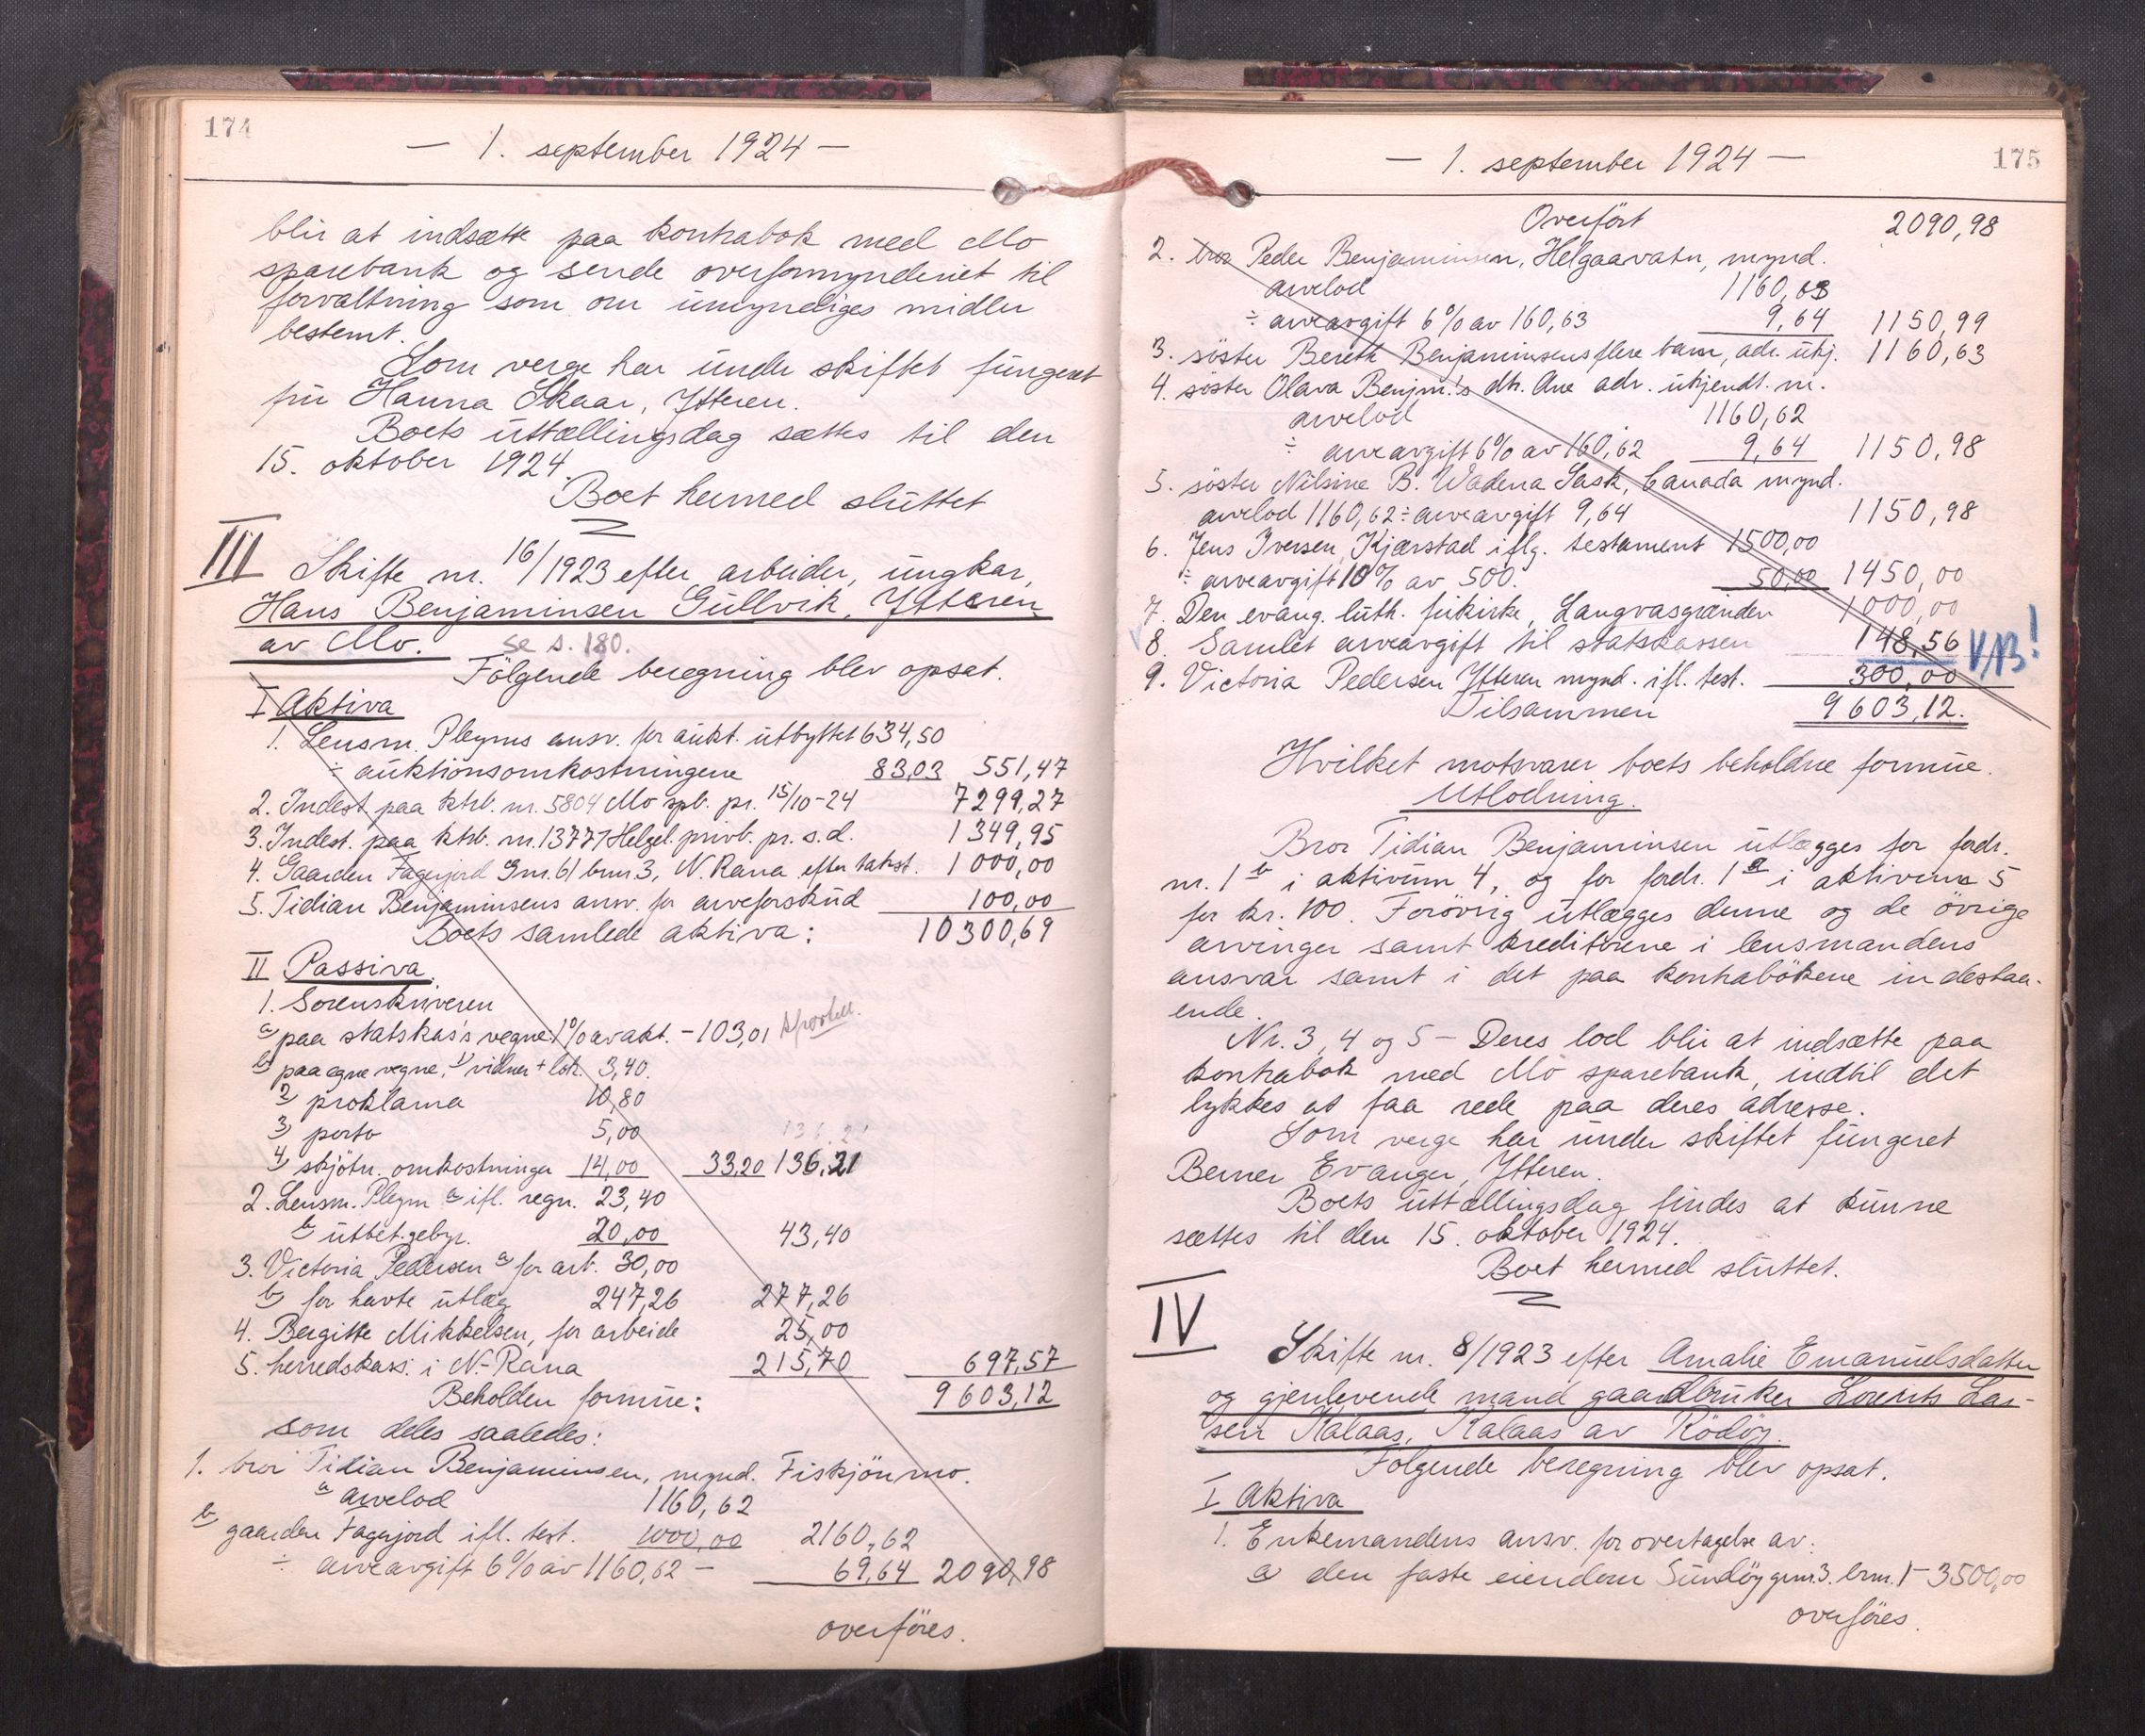 174
— 1. september 1924 —
blir at indsætte paa kontrabok med Mo
sparebank og sende overformynderiet til
forvaltning som om umyndiges midler
bestemt.
Som verge har under skiftet fungeret
fru Hanna Skaar, Ytteren.
Boets uttællingsdag sættes til den
15. oktober 1924.
Boet hermed sluttet
III Skifte nr. 16/1923 efter arbeider, ungkar,
Hans Benjaminsen Gullvik, Ytteren
av Mo. se s. 180.
Følgende beregning blev opsat.
I Aktiva
1. Lensm. Pleyms ansv. for aukt. utbyttet 634,50
÷ auktionsomkostningene 83,03 551,47
2. Indest. paa ktrb. nr. 5804 Mo spb. pr. 15/10-24 7299,27
3. Indest. paa ktrb. nr. 13777 Helgel. privb. pr. s.d. 1349,95
4. Gaarden Fagerjord gnr. 61 brnr. 3, N. Rana efter takst. 1000,00
5. Tidian Benjaminsens ansv. for arveforskud 100,00
Boets samlede aktiva: 10300,69
II Passiva.
1. Sorenskriveren
a) paa statskas's vegne 1% av akt. - 103,01
b) paa egne vegne, 1) vidner + lok. 3,40.
2) proklama 10,80
3) porto 5,00
4) skjøtn. omkostninger 14,00 33,20 136,21
2. Lensm. Pleym a) ifl. regn. 23,40
b) utbet. gebyr. 20,00 43,40
3. Victoria Pedersen a) for arb. 30,00
b) for havte utlæg 247,26 277,26
4. Bergitte Mikkelsen, for arbeide 25,00
5. herredskass. i N-Rana 215,70 697,57
Beholden formue: 9603,12
som deles saaledes:
1. bror Tidian Benjaminsen, mynd. Fiskjønmo.
a) arvelod 1160,62
b) gaarden Fagerjord ifl. test. 1000,00 2160,62
÷ arveavgift 6% av 1160,62 - 69,64 2090,98
overføres.
175
— 1. september 1924 —
Overført 2090,98
2. bror Peder Benjaminsen, Helgaavatn, mynd.
arvelod 1160,63
÷ arveavgift 6% av 160,63 9,64 1150,99
3. søster Bereth Benjaminsens flere barn, adr. ukj. 1160,63
4. søster Olava Benjm.'s dtr. Ane adr. ukjendt. m.
arvelod 1160,62
÷ arveavgift 6% av 160,62 9,64 1150,98
5. søster Nilsine B. Wadena Sask, Canada mynd.
arvelod 1160,62 ÷ arveavgift 9,64 1150,98
6. Jens Iversen, Kjærstad iflg. testament 1500,00
÷ arveavgift 10% av 500. 50,00 1450,00
7. Den evang. luth. frikirke, Langvasgrænden 1000,00
8. Samlet arveavgift til statskassen 148,56
9. Victoria Pedersen Ytteren mynd. ifl. test. 300,00
Tilsammen 9603,12.
Hvilket motsvarer boets beholdne formue.
Utlodning.
Bror Tidian Benjaminsen utlægges for fordr.
nr. 1 b i aktivum 4, og for fordr. 1 a i aktivum 5
for kr. 100. Forøvrig utlægges denne og de øvrige
arvinger samt kreditorene i lensmandens
ansvar samt i det paa kontrabøkene indestaa-
ende.
Nr. 3, 4 og 5 - Deres lod blir at indsætte paa
kontrabok med Mo sparebank, indtil det
lykkes at faa rede paa deres adresse.
Som verge har under skiftet fungeret
Berner Evanger, Ytteren.
Boets uttællingsdag findes at kunne
sættes til den 15. oktober 1924.
Boet hermed sluttet.
IV
Skifte nr. 8/1923 efter Amalie Emanuelsdatter
og gjenlevende mand gaardbruker Lorents Lar-
sen Kalaas, Kalaas av Rødøy.
Følgende beregning blev opsat.
I Aktiva
1. Enkemandens ansv. for overtagelse av:
a) den faste eiendom Sundøy gnr. 3. brnr. 1 - 3500,00
overføres.